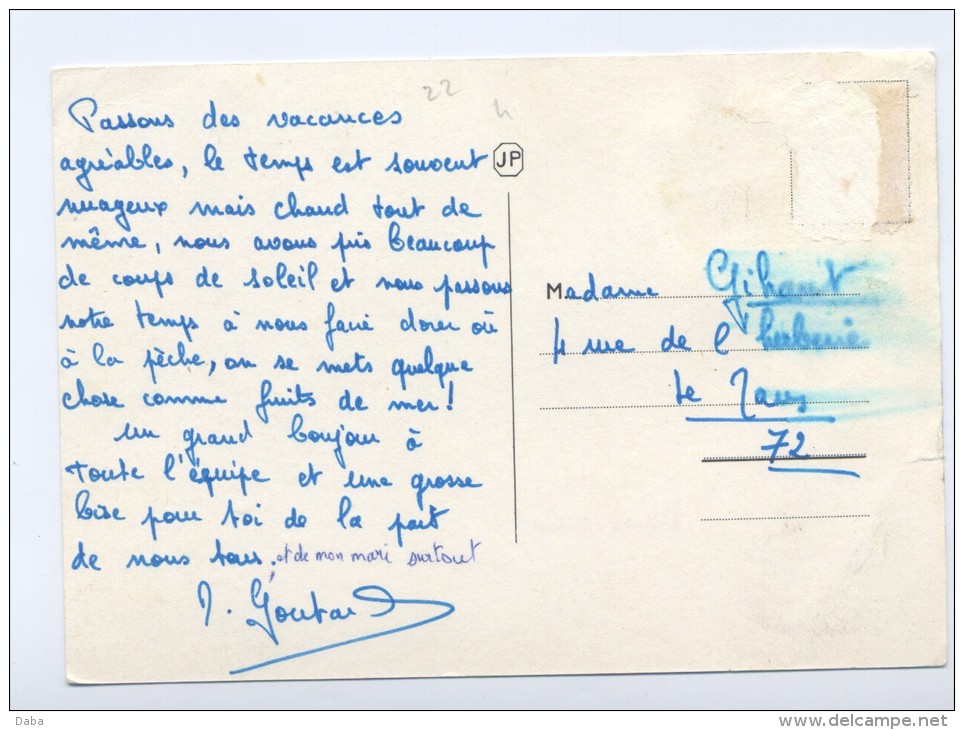 22
4
Passons des vacances
agréables, le temps est souvent
nuageux mais chaud tout de
même, nous avons pris beaucoup
de coups de soleil et nous passons
notre temps à nous faire dorer où
à la pêche, on se mets quelque
chose comme fruits de mer!
Un grand bonjour à
toute l'équipe et une grosse
bise pour toi de la part
de nous tous. et de mon mari surtout
JP
Madame
4 rue de l
Le Mans
72
Daba
www.delcampe.net